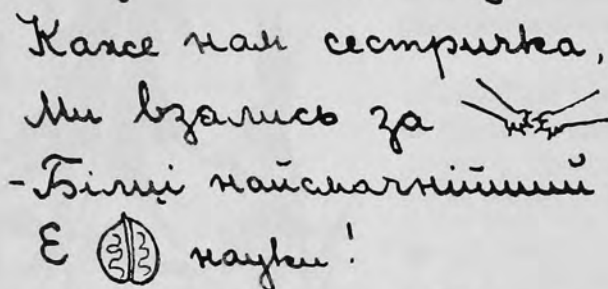 Каже нам сестричка,
Ми взялись за
-Білці найсмачніший
Є науки!